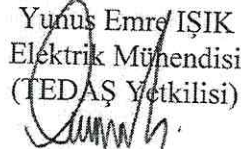 Yunus Emre IŞIK
Elektrik Mühendisi
(TEDAŞ Yetkilisi)